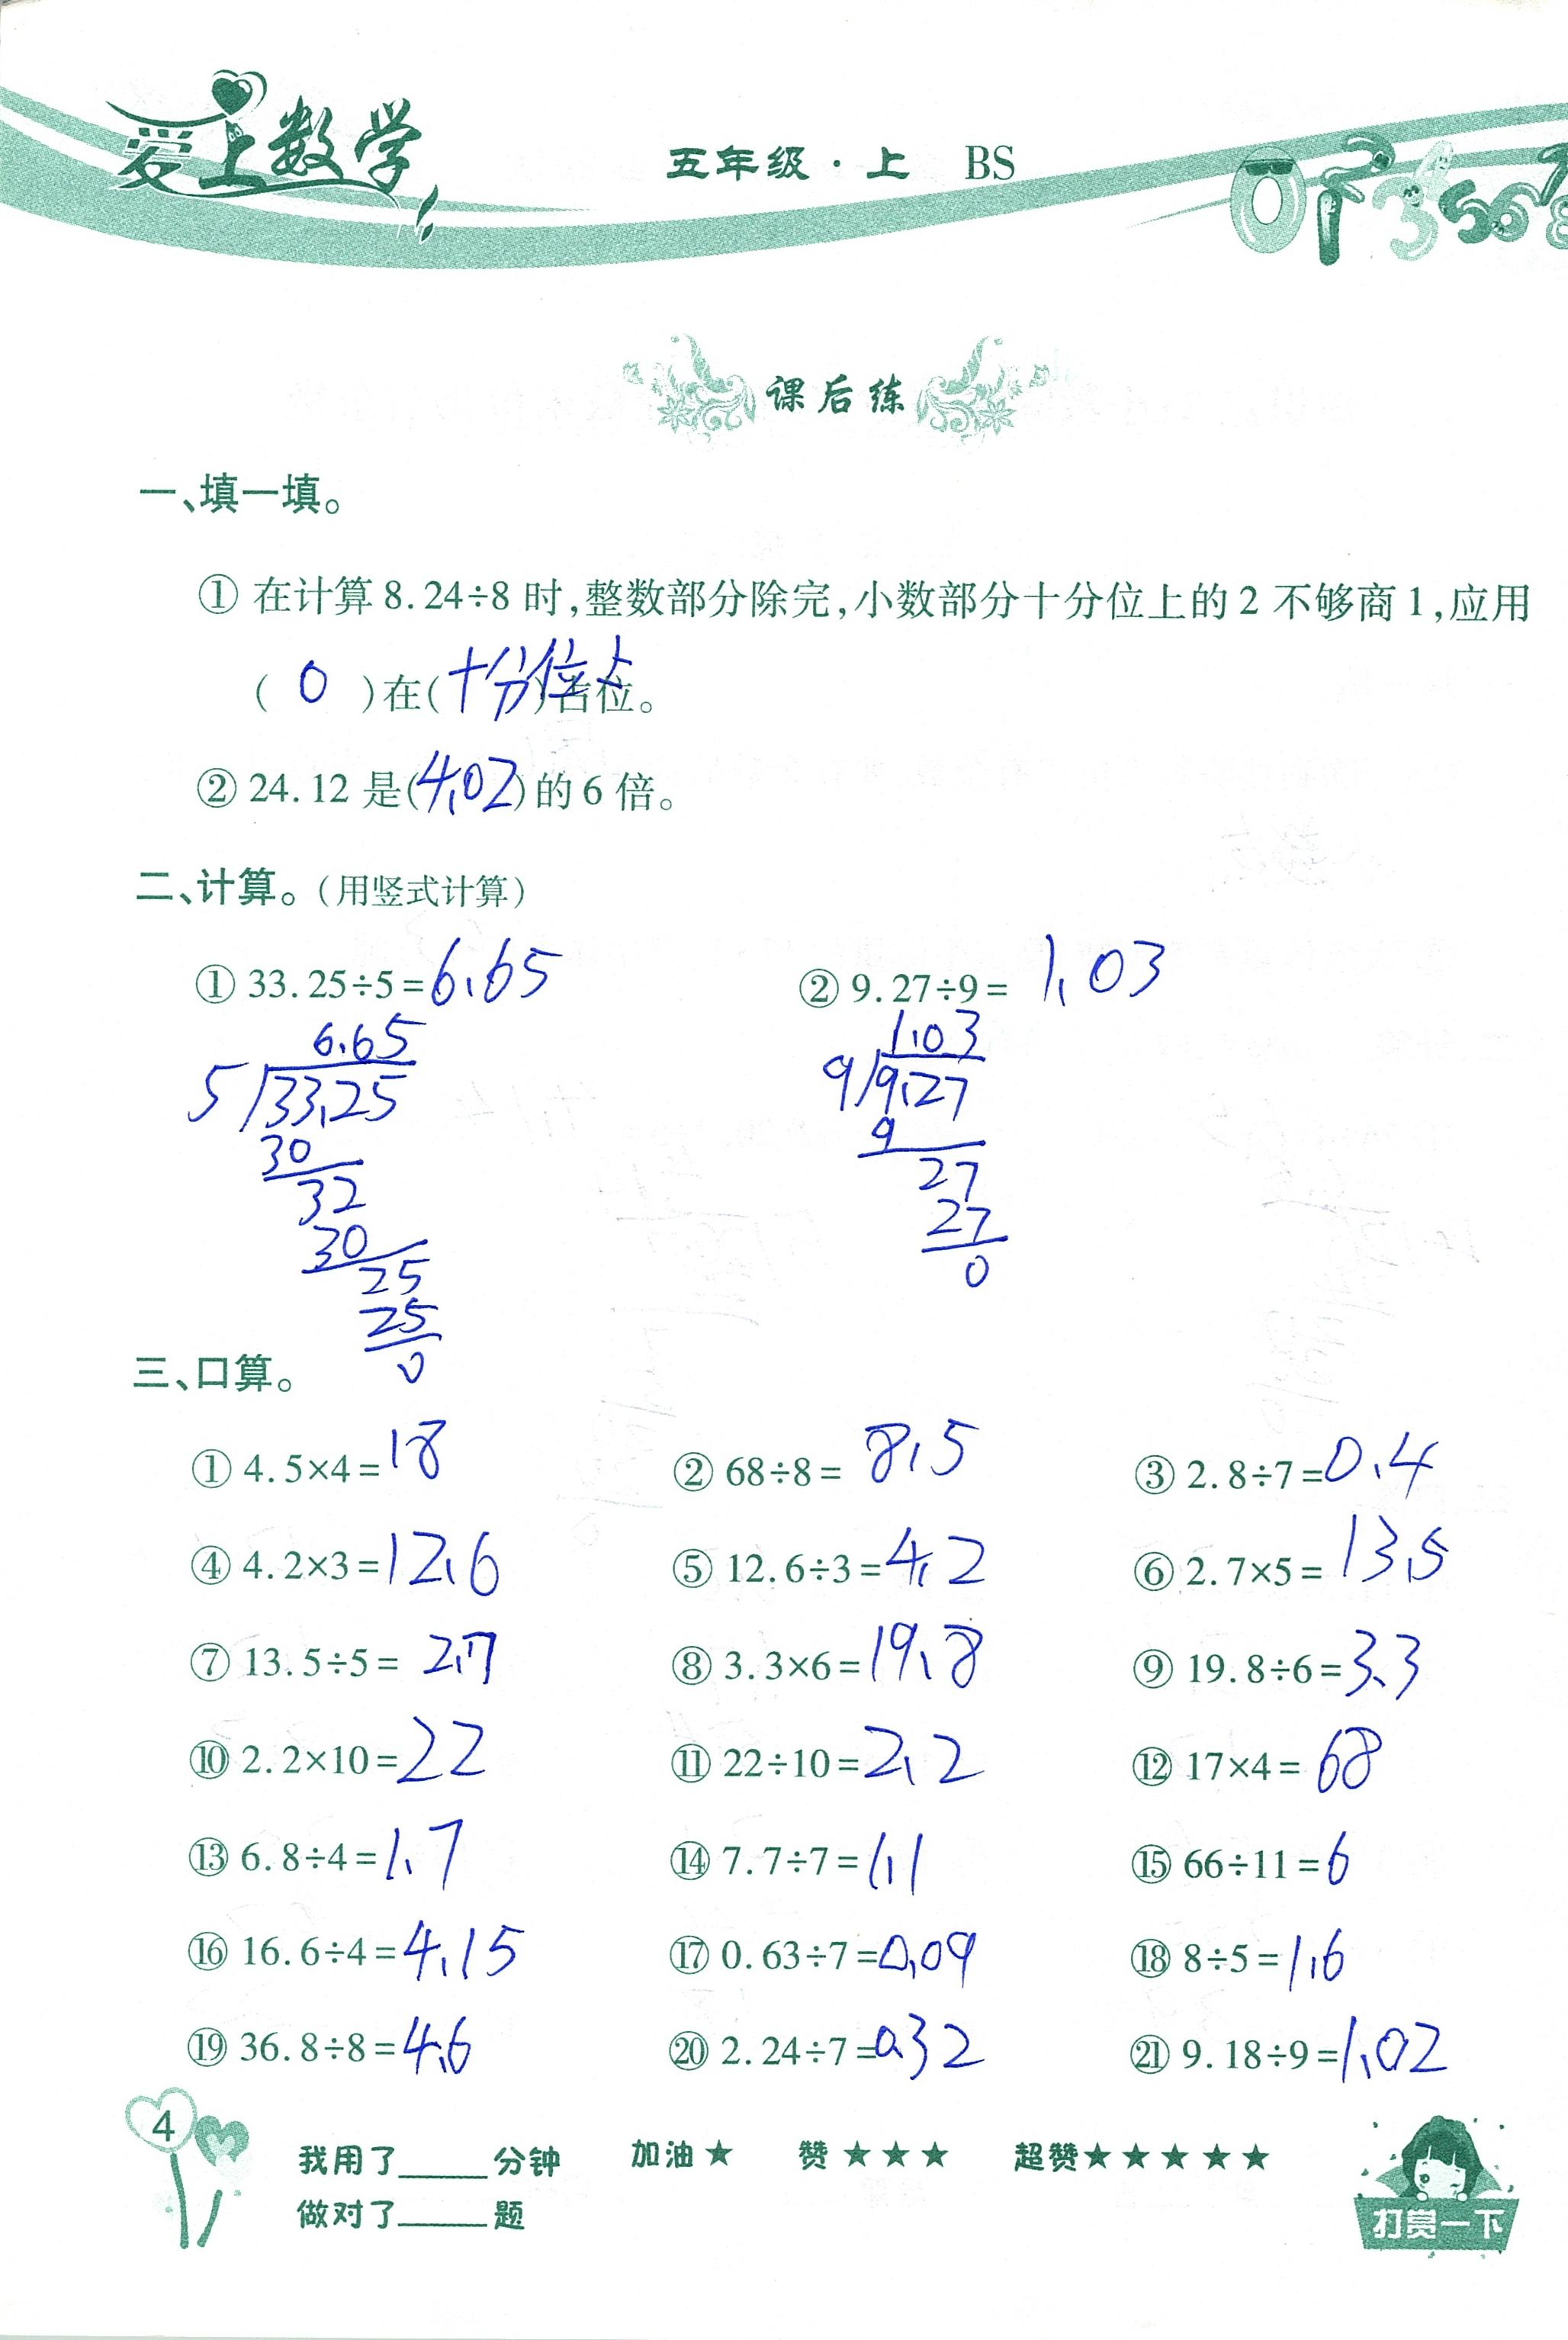 爱上数学
五年级·上 BS
课后练
一、填一填。
① 在计算 8.24÷8 时,整数部分除完,小数部分十分位上的 2 不够商 1,应用
( 0 )在(十分位上)占位。
② 24.12 是(4.02)的 6 倍。
二、计算。(用竖式计算)
① 33.25÷5=6.65 ② 9.27÷9= 1.03
6.65 1.03
5 33.25 9 9.27
30 9
32 27
30 27
25 0
25
0
三、口算。
① 4.5×4=18 ② 68÷8= 8.5 ③ 2.8÷7=0.4
④ 4.2×3=12.6 ⑤ 12.6÷3=4.2 ⑥ 2.7×5= 13.5
⑦ 13.5÷5= 2.7 ⑧ 3.3×6=19.8 ⑨ 19.8÷6=3.3
⑩ 2.2×10=22 ⑪ 22÷10=2.2 ⑫ 17×4= 68
⑬ 6.8÷4=1.7 ⑭ 7.7÷7=1.1 ⑮ 66÷11=6
⑯ 16.6÷4=4.15 ⑰ 0.63÷7=0.09 ⑱ 8÷5=1.6
⑲ 36.8÷8=4.6 ⑳ 2.24÷7=0.32 ㉑ 9.18÷9=1.02
4
我用了____分钟 加油★ 赞★★★ 超赞★★★★★
做对了____题
打赏一下